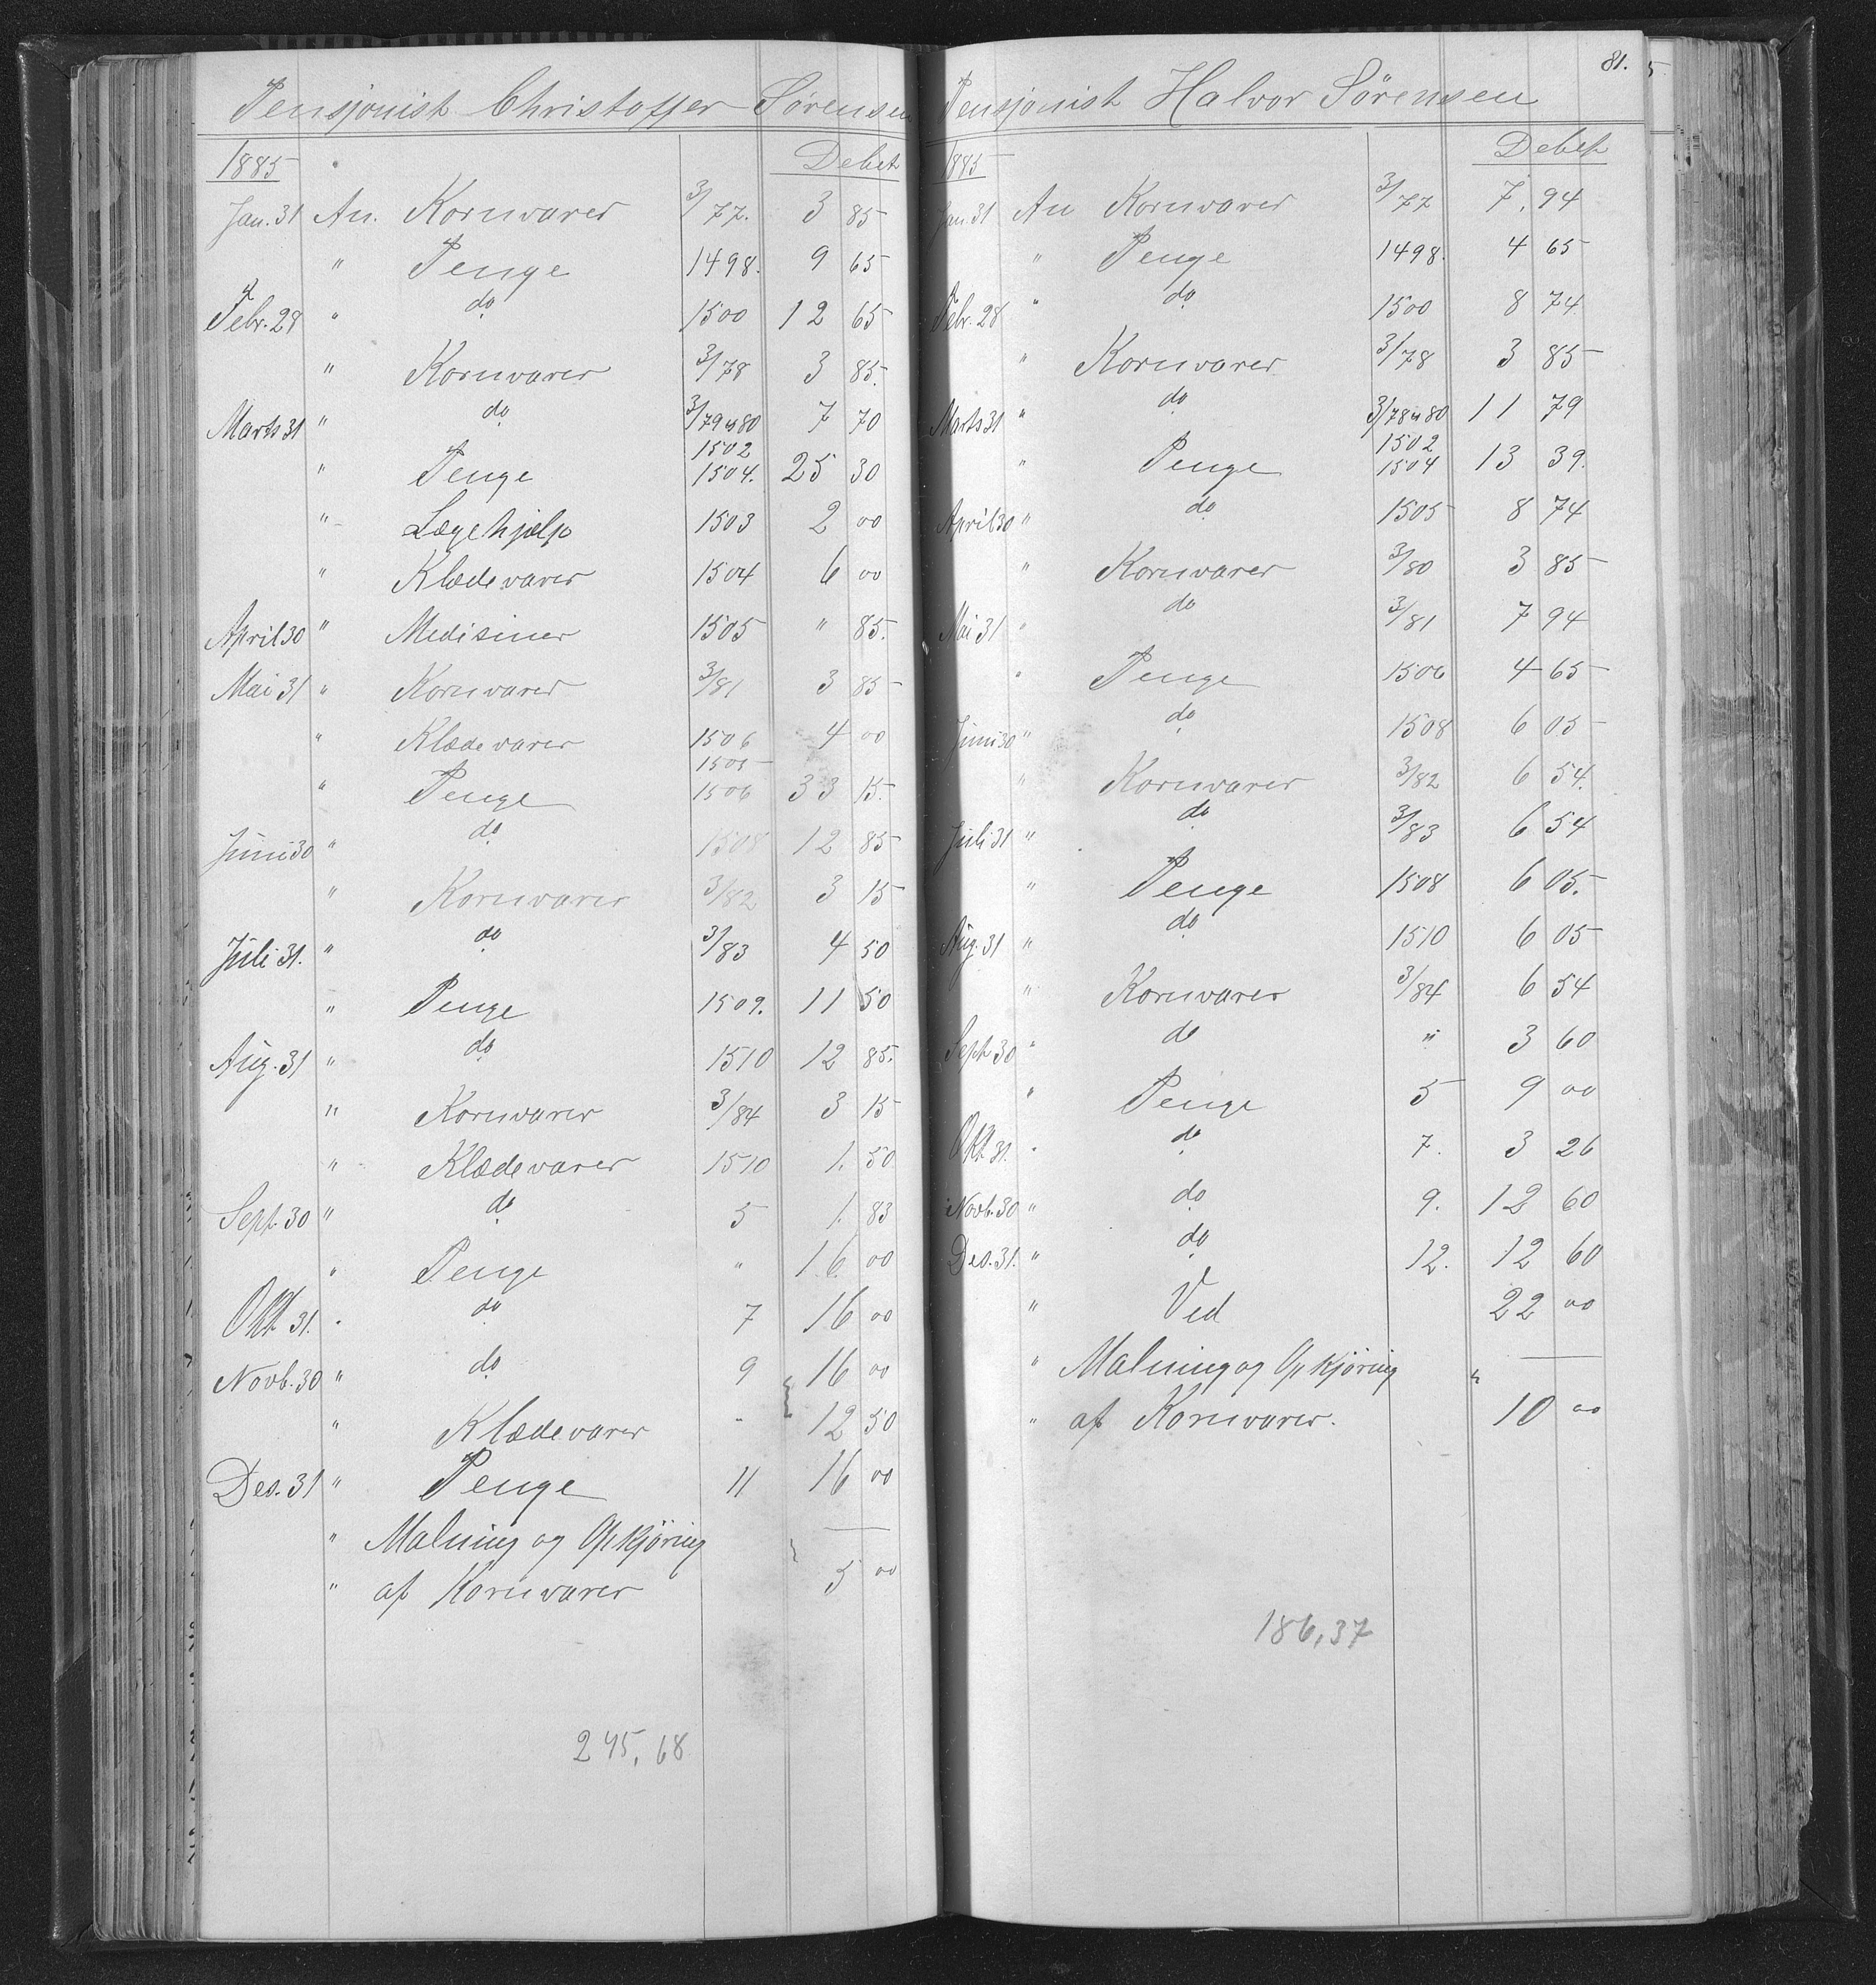 Pensjonist Christoffer Sørensen
1885 Debet
Jan. 31 An. Kornvarer 3/77. 3 85
" Penge 1498. 9 65
Febr. 28 " do 1500 12 65
" Kornvarer 3/78 3 85.
Marts 31 " do 3/79 & 80 7 70
" Penge 1502 1504. 25 30
" Lægehjælp 1503 2 00
" Klædevarer 1504 6 00
April 30 " Medisiner 1505 " 85.
Mai 31 " Kornvarer 3/81 3 85
" Klædevarer 1506 4 00
" Penge 1505 1506 33 15.
Juni 30 " do 1508 12 85
" Kornvarer 3/82 3 15
Juli 31. " do 3/83 4 50
" Penge 1509. 11 50
Aug. 31 " do 1510 12 85.
" Kornvarer 3/84 3 15
" Klædevarer 1510 1. 50
Sept. 30 " do 5 1. 83
" Penge " 16 00
Okt 31. " do 7 16 00
Novb. 30 " do 9 16 00
" Klædevarer " 12 50
Des. 31 " Penge 11 16 00
" Malning og Opkjøring
" af Kornvarer 5 00
245,68
81.
Pensjonist Halvor Sörensen
1885 Debet
Jan. 31 An Kornvarer 3/77 7, 94
" Penge 1498. 4 65
Febr. 28 " do 1500 8 74
" Kornvarer 3/78 3 85
Marts 31 " do 3/78 & 80 11 79
" Penge 1502 1504 13 39.
April 30 " do 1505 8 74
" Kornvarer 3/80 3 85
Mai 31 " do 3/81 7 94
" Penge 1506 4 65
Juni 30 " do 1508 6 05
" Kornvarer 3/82 6 54.
Juli 31 " do 3/83 6 54
" Penge 1508 6 05.
Aug. 31 " do 1510 6 05
" Kornvarer 3/84 6 54
Sept 30 " do " 3 60
" Penge 5 9 00
Okt 31. " do 7. 3 26
Novb. 30 " do 9. 12 60
Des. 31. " do 12. 12 60
" Ved 22 00
" Malning og Opkjøring "
" af Kornvarer. 10 00
186,37